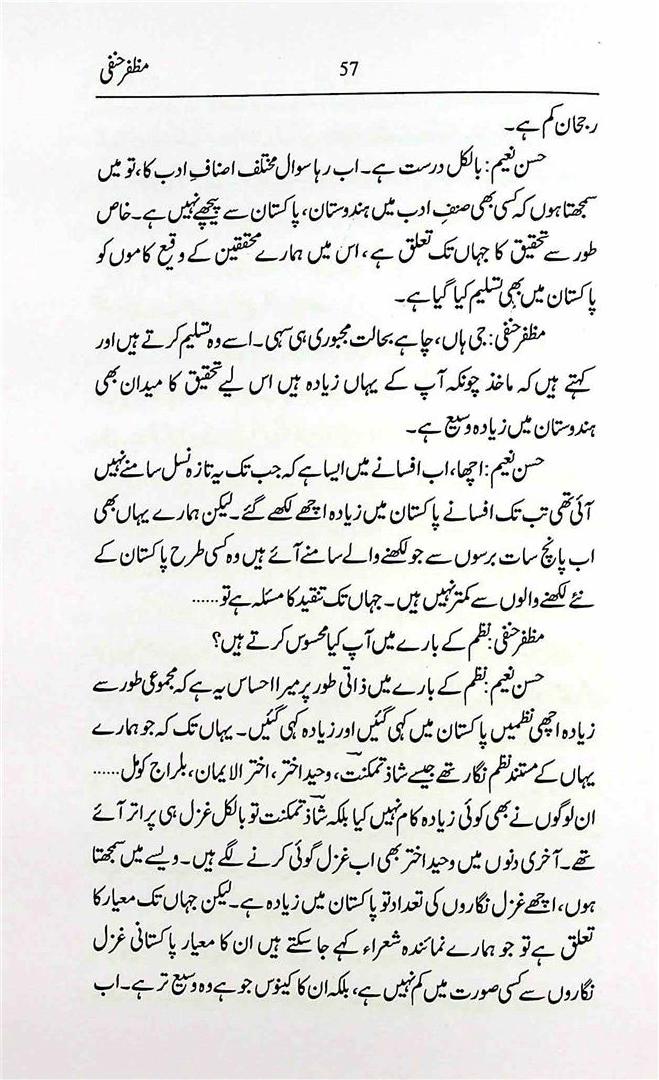 مظفر حنفی 57
رجحان کم ہے۔
حسن نعیم: بالکل درست ہے۔ اب رہا سوال مختلف اصنافِ ادب کا، تو میں
سمجھتا ہوں کہ کسی بھی صنفِ ادب میں ہندوستان، پاکستان سے پیچھے نہیں ہے۔ خاص
طور سے تحقیق کا جہاں تک تعلق ہے، اس میں ہمارے محققین کے وقیع کاموں کو
پاکستان میں بھی تسلیم کیا گیا ہے۔
مظفر حنفی: جی ہاں، چاہے بحالت مجبوری ہی سہی۔ اسے وہ تسلیم کرتے ہیں اور
کہتے ہیں کہ ماخذ چونکہ آپ کے یہاں زیادہ ہیں اس لیے تحقیق کا میدان بھی
ہندوستان میں زیادہ وسیع ہے۔
حسن نعیم: اچھا، اب افسانے میں ایسا ہے کہ جب تک یہ تازہ نسل سامنے نہیں
آئی تھی تب تک افسانے پاکستان میں زیادہ اچھے لکھے گئے۔ لیکن ہمارے یہاں بھی
اب پانچ سات برسوں سے جو لکھنے والے سامنے آئے ہیں وہ کسی طرح پاکستان کے
نئے لکھنے والوں سے کمتر نہیں ہیں۔ جہاں تک تنقید کا مسئلہ ہے تو......
مظفر حنفی: نظم کے بارے میں آپ کیا محسوس کرتے ہیں؟
حسن نعیم: نظم کے بارے میں ذاتی طور پر میرا احساس یہ ہے کہ مجموعی طور سے
زیادہ اچھی نظمیں پاکستان میں کہی گئیں اور زیادہ کہی گئیں۔ یہاں تک کہ جو ہمارے
یہاں کے مستند نظم نگار تھے جیسے شاذ تمکنت، وحید اختر، اختر الایمان، بلراج کومل......
ان لوگوں نے بھی کوئی زیادہ کام نہیں کیا بلکہ شاذ تمکنت تو بالکل غزل ہی پر اتر آئے
تھے۔ آخری دنوں میں وحید اختر بھی اب غزل گوئی کرنے لگے ہیں۔ ویسے میں سمجھتا
ہوں، اچھے غزل نگاروں کی تعداد تو پاکستان میں زیادہ ہے۔ لیکن جہاں تک معیار کا
تعلق ہے تو جو ہمارے نمائندہ شعراء کہے جا سکتے ہیں ان کا معیار پاکستانی غزل
نگاروں سے کسی صورت میں کم نہیں ہے، بلکہ ان کا کینوس جو ہے وہ وسیع تر ہے۔ اب